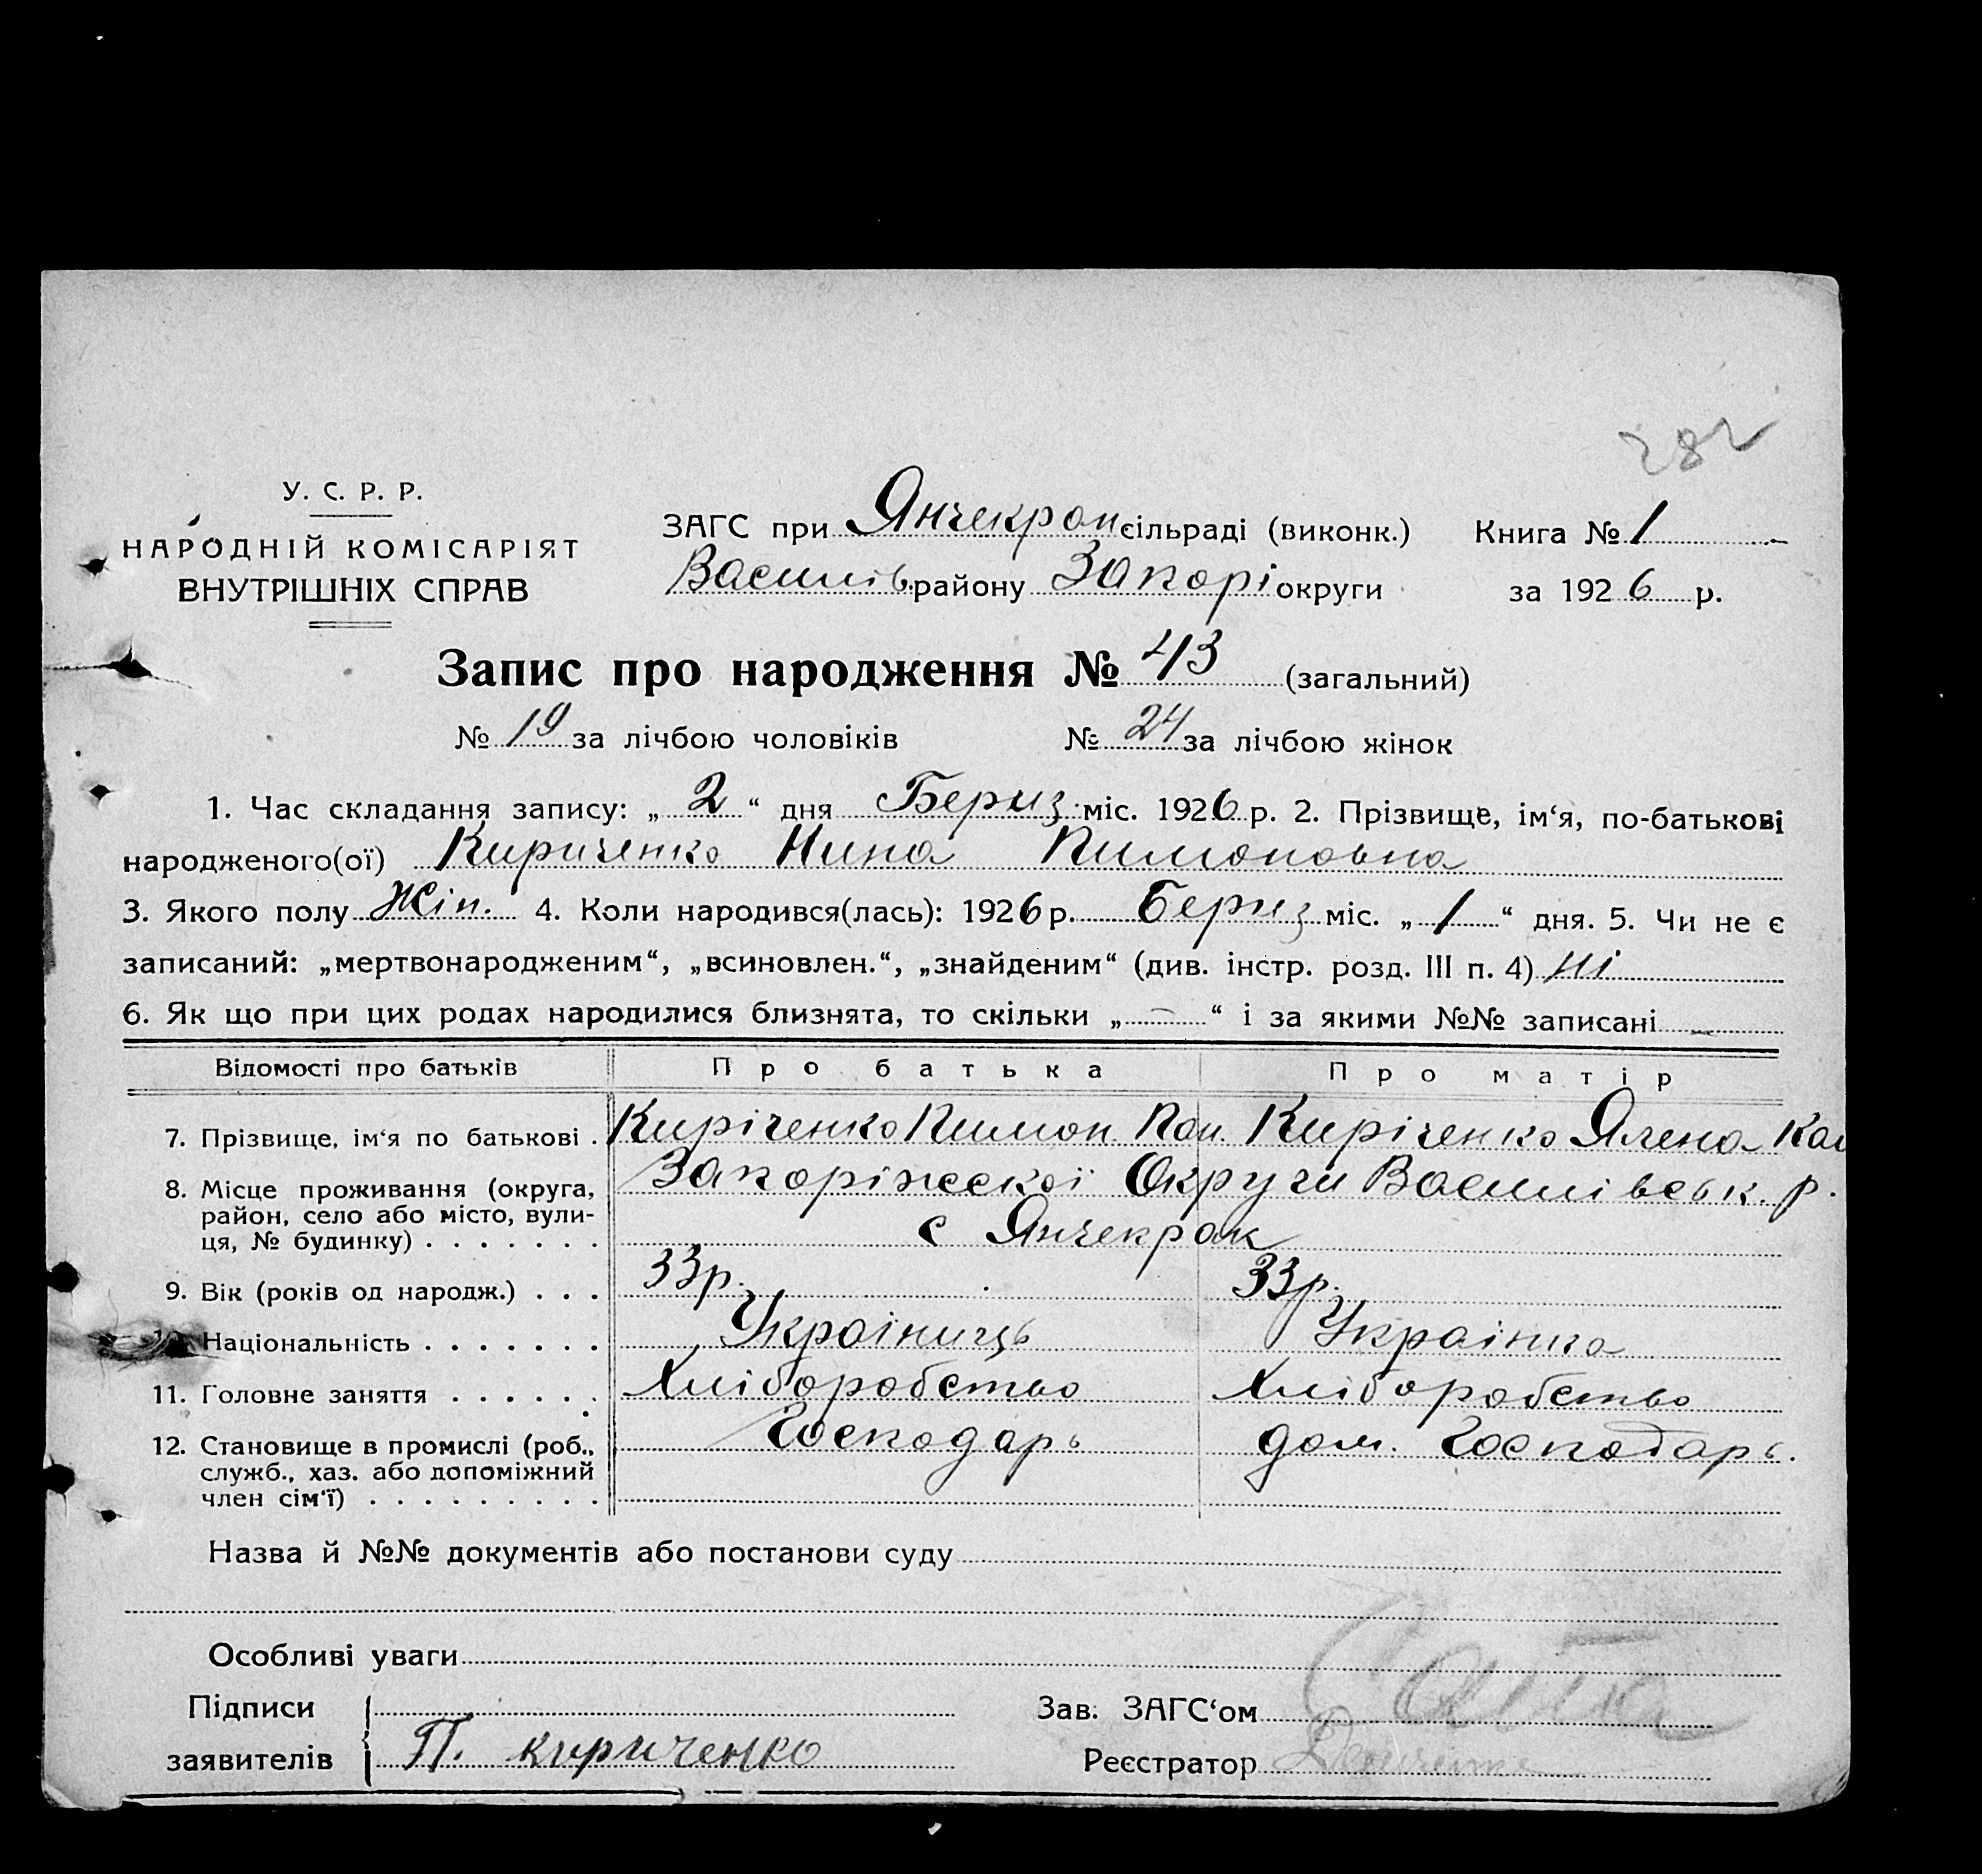 282
У. С. Р. Р.
НАРОДНІЙ КОМІСАРІЯТ
ВНУТРІШНІХ СПРАВ
ЗАГС при Янчекрак сільраді (виконк.) Книга № 1
Василів району Запорі округи за 1926 р.
Запис про народження № 43 (загальний)
№ 19 за лічбою чоловіків № 24 за лічбою жінок
1. Час складання запису: „ 2 “ дня Бериз міс. 1926 р. 2. Прізвище, ім‘я, по-батькові
народженого(ої) Кириченко Нина Пимоновна
3. Якого полу Жін. 4. Коли народився(лась): 1926 р. Бериз міс. „ 1 “ дня. 5. Чи не є
записаний: „мертвонародженим“, „всиновлен.“, „знайденим“ (див. інстр. розд. III п. 4) ні
6. Як що при цих родах народилися близнята, то скільки „ — “ і за якими №№ записані —
Відомості про батьків Про батька Про матір
7. Прізвище, ім‘я по батькові . Киріченко Пимон Пан. Киріченко Ялена
8. Місце проживання (округа, Запоріжської Округи Василівськ. р.
район, село або місто, вули-
ця, № будинку) . . . . . . . с Янчекрак
9. Вік (років од народж.) . . . 33р. 33р.
10. Національність . . . . . . . Украініць Украінка
11. Головне заняття . . . . . . Хліборобство Хліборобство
12. Становище в промислі (роб., Господарь дом. Господарь.
служб., хаз. або допоміжний
член сім‘ї) . . . . . . . . .
Назва й №№ документів або постанови суду
Особливі уваги
Підписи Зав. ЗАГС‘ом
заявителів П. кириченко Реєстратор